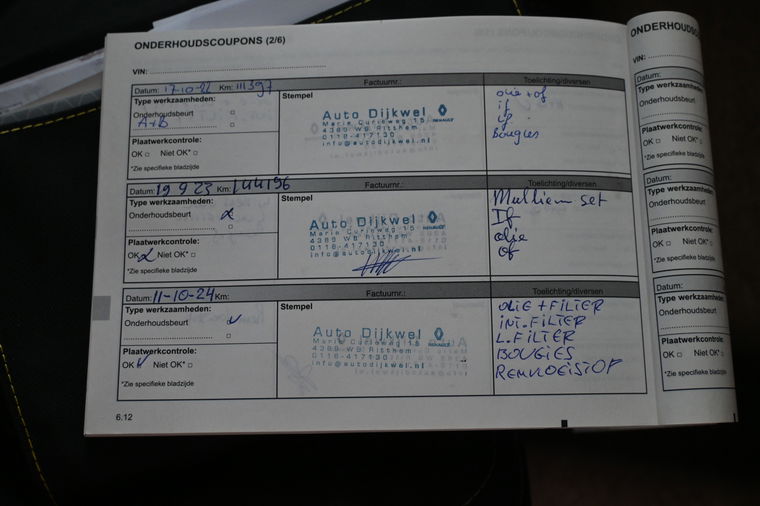 ONDERHOUDSCOUPONS (2/6)
VIN:
Datum: 17-10-22 Km: 111397
Factuurnr.:
Toelichting/diversen
Type werkzaamheden:
Onderhoudsbeurt
A+B
Plaatwerkcontrole:
OK Niet OK*
*Zie specifieke bladzijde
Stempel
Auto Dijkwel
RENAULT
Marie Curieweg 15
4389 WB Ritthem
0118-417130
info@autodijkwel.nl
olie + of
if
lf
Bougies
Datum: 19 9 23 Km: 144196
Factuurnr.:
Toelichting/diversen
Type werkzaamheden:
Onderhoudsbeurt
Plaatwerkcontrole:
OK Niet OK*
*Zie specifieke bladzijde
Stempel
Auto Dijkwel
RENAULT
Marie Curieweg 15
4389 WB Ritthem
0118-417130
info@autodijkwel.nl
Multiem set
If
olie
of
Datum: 11-10-24 Km:
Factuurnr.:
Toelichting/diversen
Type werkzaamheden:
Onderhoudsbeurt
Plaatwerkcontrole:
OK Niet OK*
*Zie specifieke bladzijde
Stempel
Auto Dijkwel
RENAULT
Marie Curieweg 15
4389 WB Ritthem
0118-417130
info@autodijkwel.nl
OLIE + FILTER
INT. FILTER
L. FILTER
BOUGIES
REMVLOEISTOF
6.12
ONDERHOUDSC
VIN:
Datum:
Type werkzaamheden:
Onderhoudsbeurt
Plaatwerkcontrole:
OK Niet OK*
*Zie specifieke bladzijde
Datum:
Type werkzaamheden:
Onderhoudsbeurt
Plaatwerkcontrole:
OK Niet OK*
*Zie specifieke bladzijde
Datum:
Type werkzaamheden:
Onderhoudsbeurt
Plaatwerkcontrole:
OK Niet OK*
*Zie specifieke bladzijde